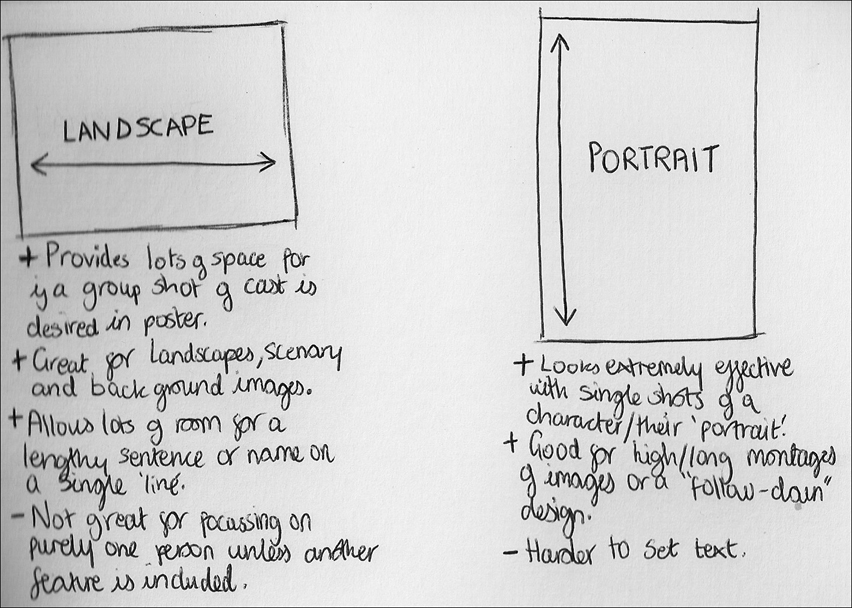 LANDSCAPE
+ Provides lots of space for
if a group shot of cast is
desired in poster.
+ Great for landscapes, scenary
and background images.
+ Allows lots of room for a
lengthy sentence or name on
a single 'line'.
- Not great for focussing on
purely one person unless another
feature is included.
PORTRAIT
+ Looks extremely effective
with single shots of a
character/their 'portrait'.
+ Good for high/long montages
of images or a "follow-down"
design.
- Harder to set text.